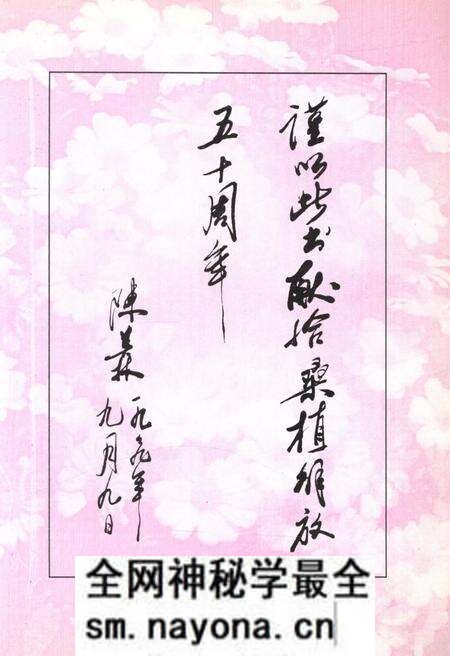 谨以此书献给桑植解放
五十周年
陈
一九九九年
九月九日
全网神秘学最全
sm.nayona.cn